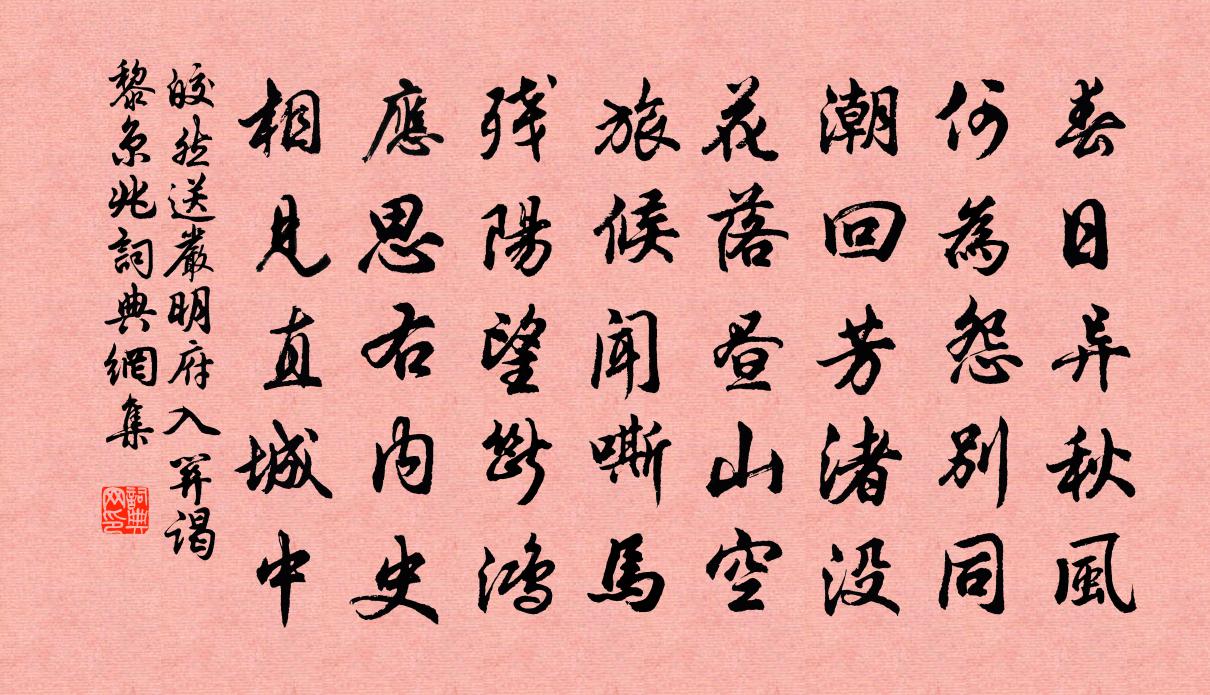 春日异秋風
何為怨別同
潮回芳渚没
花落昼山空
旅候聞嘶馬
残陽望断鴻
應思右内史
相見直城中
皎然送嚴明府入關謁
黎京兆詞典網集
詞典网印